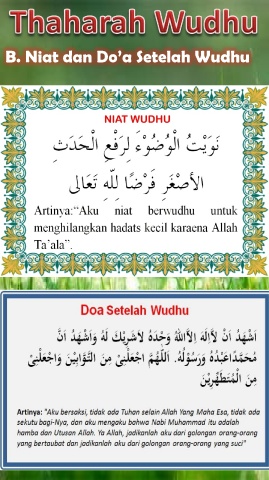 Thaharah Wudhu
B. Niat dan Do'a Setelah Wudhu
NIAT WUDHU
نَوَيْتُ الْوُضُوْءَ لِرَفْعِ الْحَدَثِ
الأَصْغَرِ فَرْضًا لِلّٰهِ تَعَالَى
Artinya:“Aku niat berwudhu untuk
menghilangkan hadats kecil karaena Allah
Ta'ala”.
Doa Setelah Wudhu
اَشْهَدُ اَنْ لاَّاِلَهَ اِلاَّاللهُ وَحْدَهُ لاَشَرِيْكَ لَهُ وَاَشْهَدُ اَنَّ
مُحَمَّدًاعَبْدُهُ وَرَسُوْلُهُ. اَللّٰهُمَّ اجْعَلْنِىْ مِنَ التَّوَّابِيْنَ وَاجْعَلْنِىْ
مِنَ الْمُتَطَهِّرِيْنَ
Artinya: "Aku bersaksi, tidak ada Tuhan selain Allah Yang Maha Esa, tidak ada
sekutu bagi-Nya, dan aku mengaku bahwa Nabi Muhammad itu adalah
hamba dan Utusan Allah. Ya Allah, jadikanlah aku dari golongan orang-orang
yang bertaubat dan jadikanlah aku dari golongan orang-orang yang suci"